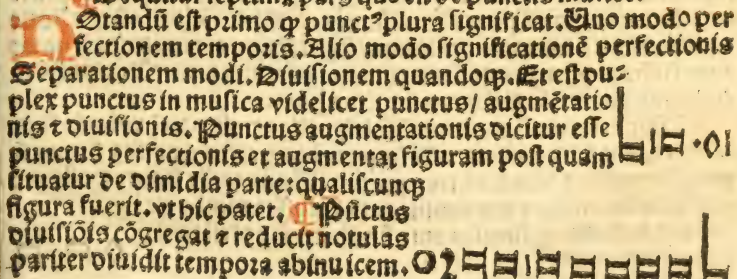 Notandū est primo qꝫ punctꝰ plura significat. Uno modo per
fectionem temporis. Alio modo significationē perfectionis
Separationem modi. Diuisionem quandoqꝫ. Et est du⸗
plex punctus in musica videlicet punctus / augmētatio
nis ⁊ diuisionis. Punctus augmentationis dicitur esse
punctus perfectionis et augmentat figuram post quam
situatur de dimidia parte: qualiscunqꝫ
figura fuerit. vt hic patet. ¶ Pūctus
diuisiōis cōgregat ⁊ reducit notulas
pariter diuidit tempora abinuicem.